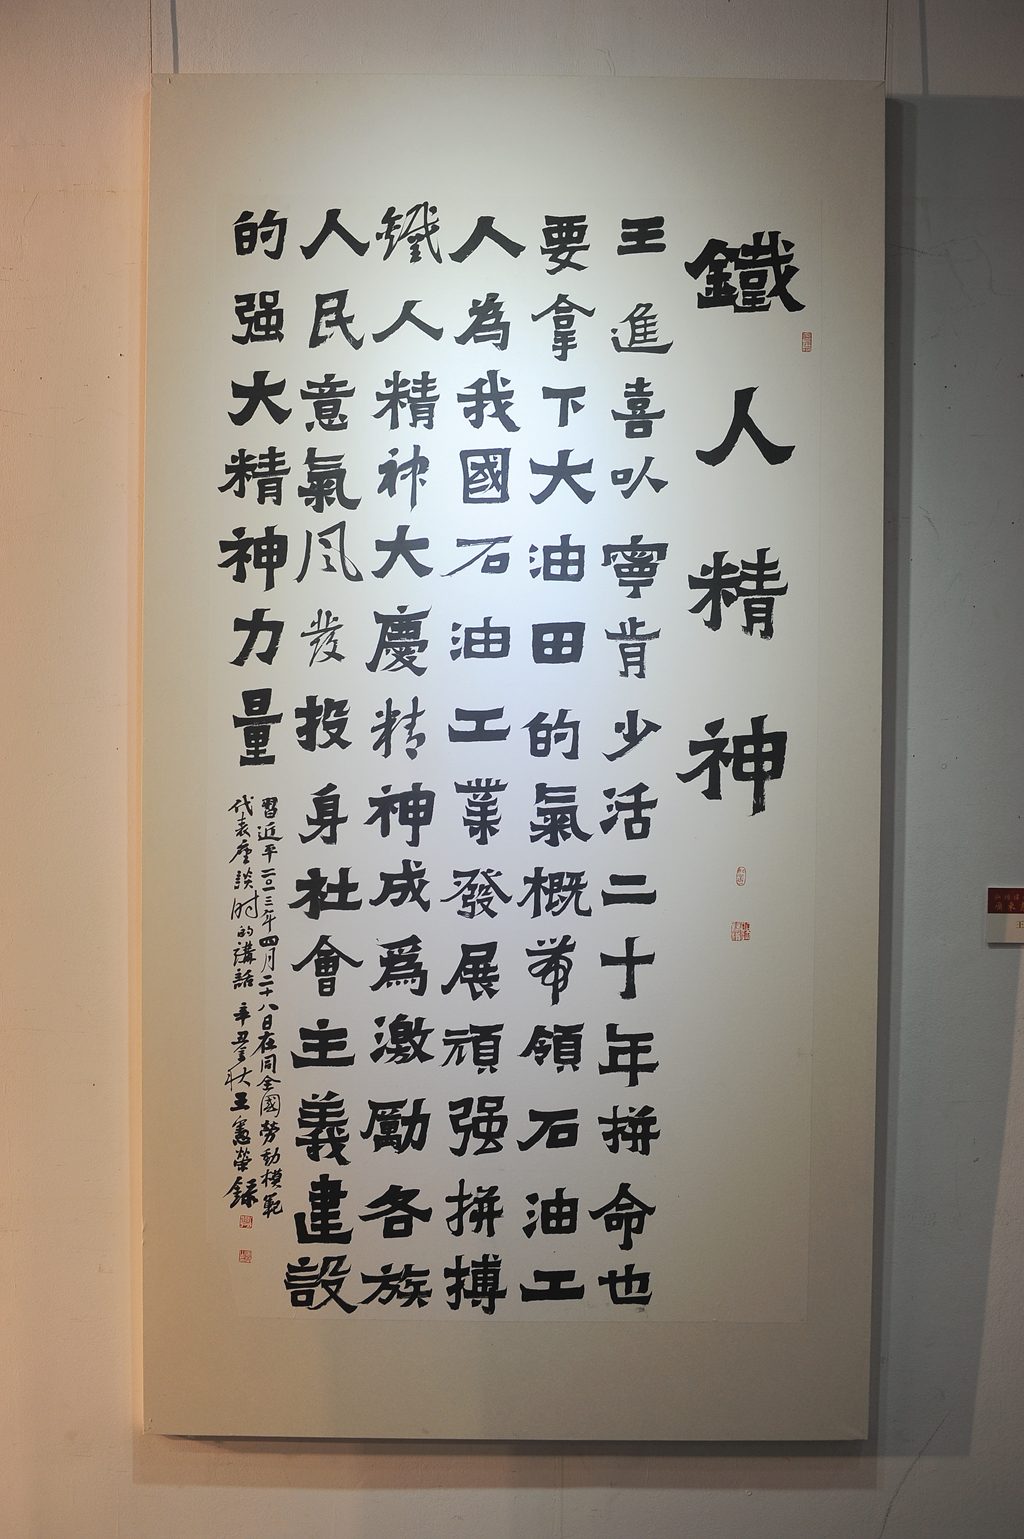 鐵人精神
王進喜以寧肯少活二十年拼命也
要拿下大油田的氣概帶領石油工
人為我國石油工業發展頑强拼搏
鐵人精神大慶精神成爲激勵各族
人民意氣风發投身社會主義建設
的强大精神力量
習近平二〇一三年四月二十八日在同全國勞動模範
代表座談时的講話 辛丑秋王憲榮錄